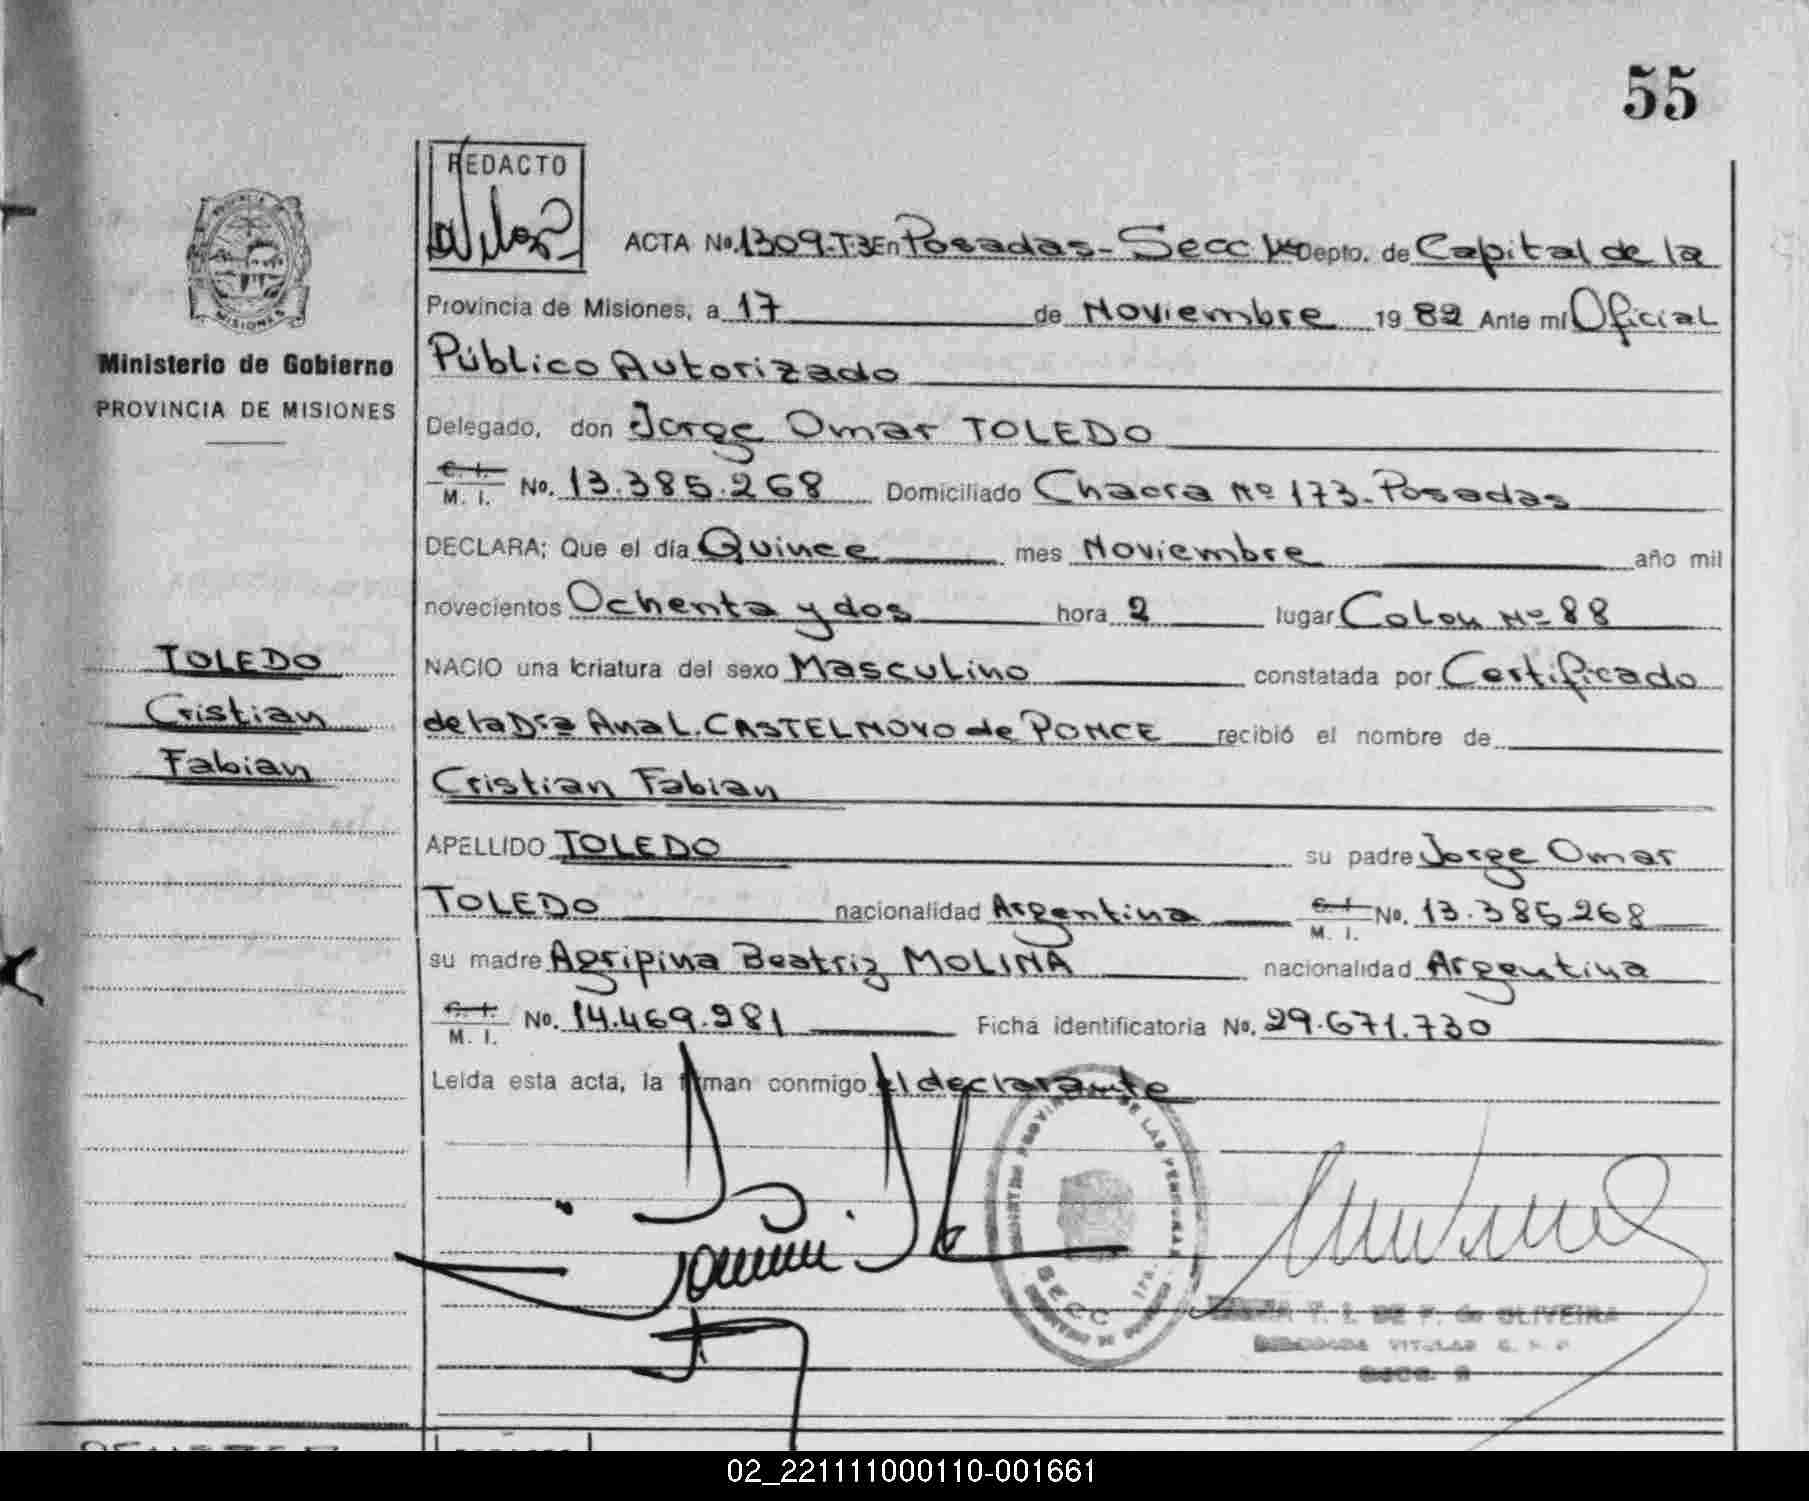 55
REDACTO
ACTA No. 1309-T.3 En Posadas - Secc 1ra Depto. de Capital de la
MISIONES
Provincia de Misiones, a 17 de Noviembre 1982 Ante mi Oficial
Ministerio de Gobierno
Público Autorizado
PROVINCIA DE MISIONES
Delegado, don Jorge Omar TOLEDO
C. I.
M. I. No. 13.385.268 Domiciliado Chacra Nº 173 - Posadas
DECLARA; Que el día Quince mes Noviembre año mil
novecientos Ochenta y dos hora 2 lugar Colon Nº 88
TOLEDO
NACIO una criatura del sexo Masculino constatada por Certificado
Cristian
de la Dra Ana L. CASTELNOVO de PONCE recibió el nombre de
Fabian
Cristian Fabian
APELLIDO TOLEDO su padre Jorge Omar
TOLEDO nacionalidad Argentina C. I. M. I. No. 13.385.268
su madre Agripina Beatriz MOLINA nacionalidad Argentina
C. I.
M. I. No. 14.469.281 Ficha identificatoria No. 29.671.730
Leida esta acta, la firman conmigo el declarante
DE LAS PERSONAS
SECC 1ra.
T. I. DE F. de OLIVEIRA
TITULAR
02_221111000110-001661